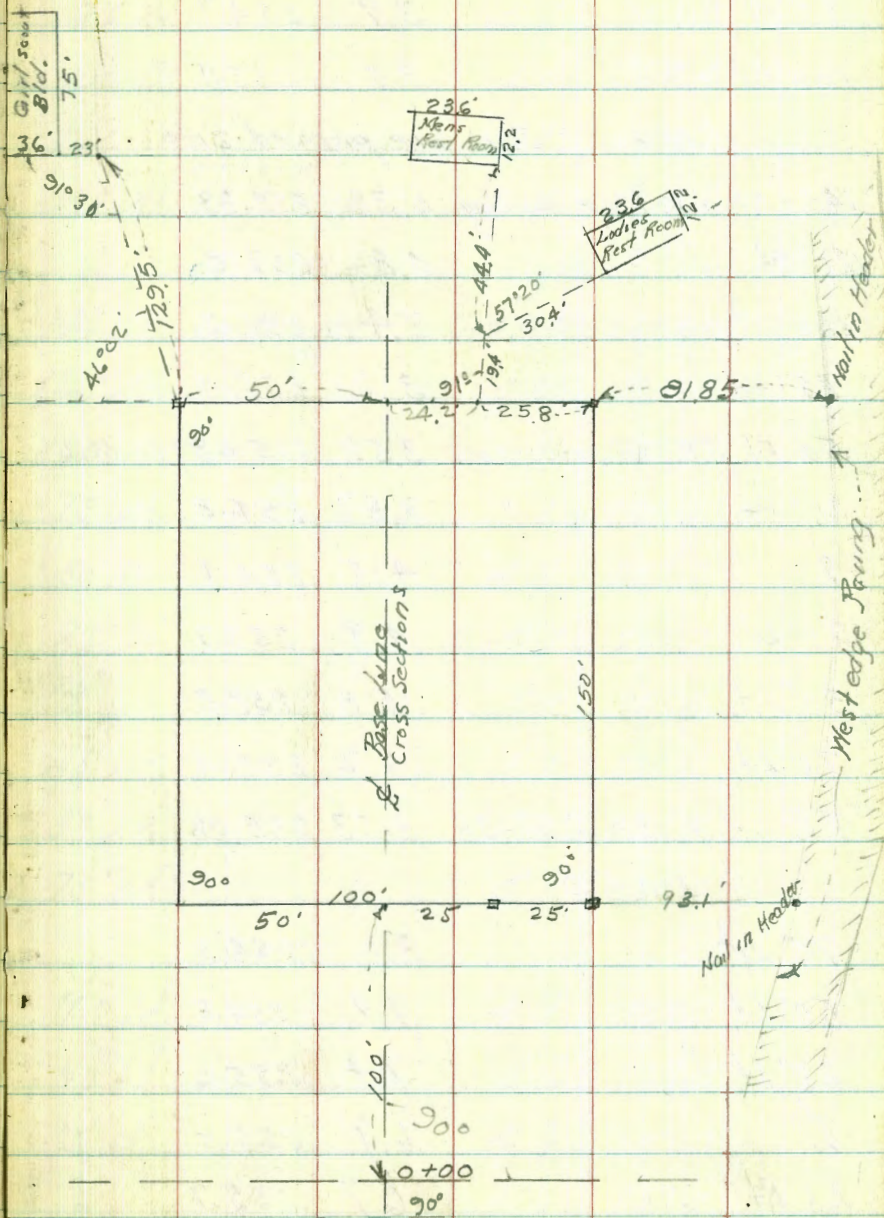 Girl Scout
Bld.
75'
36'
23'
91°30'
129.5'
46°02'
23.6'
Mens
Rest Room
12.2
23.6
Ladies
Rest Room
12.2
44.4'
57°20'
30.4'
19.4'
91°
50'
24.2'
25.8'
81.85
Nail in Header
90°
West edge Paving
℄ Base Line
Cross Sections
150'
90°
90°
100'
50'
25
25'
93.1'
Nail in Header
100'
90°
0+00
90°